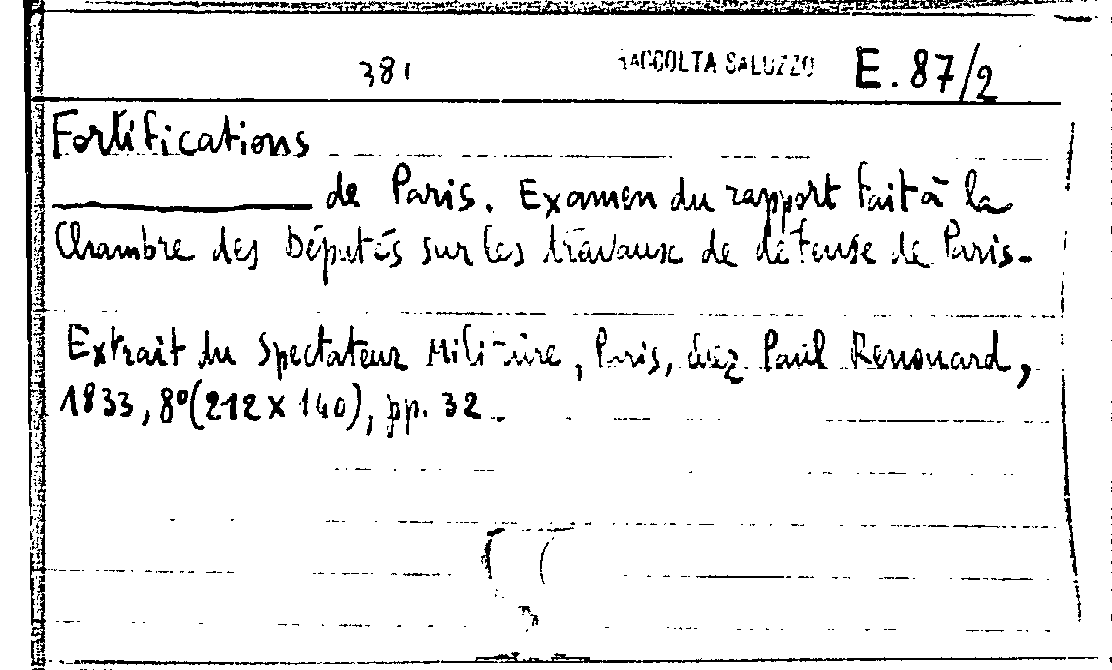 381 RACCOLTA SALUZZO E. 87/2
Fortifications
de Paris. Examen du rapport fait à la
Chambre des Députés sur les travaux de défense de Paris.
Extrait du Spectateur Militaire, Paris, chez Paul Renouard,
1833, 8º (212 x 140), pp. 32.